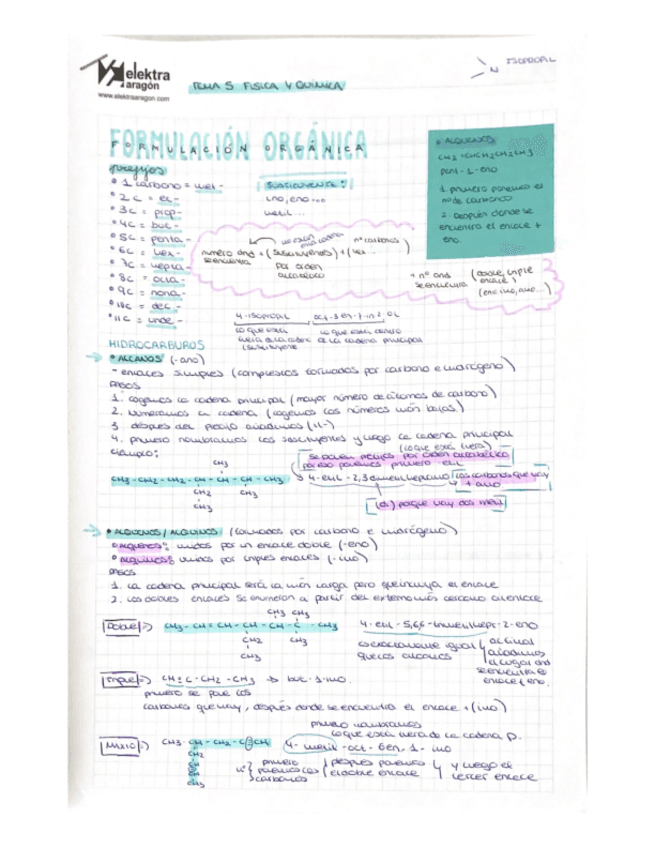 elektra
aragón
www.elektraaragon.com
TEMA 5 FISICA Y QUÍMICA
ISOPROPIL
FORMULACIÓN ORGÁNICA
prefijos
• 1 carbono = met-
• 2C = et-
• 3C = prop-
• 4C = but-
• 5C = penta-
• 6C = hex-
• 7C = hepta-
• 8C = octa-
• 9C = nona-
• 10C = dec-
• 11C = unde-
SUSTITUYENTE:
ino, eno...
metil...
• ALQUENOS
CH2 = CHCH2CH2CH3
pent-1-eno
1. primero ponemos el
nº de carbonos
2. Después donde se
encuentra el enlace +
eno.
nº carbonos
número dnd + (sustituyentes) + (
se encuentra
por orden
alfabético
+ nº dnd
se encuentra
(doble, triple
enlace)
(eno, ino, ano...)
4-isopropil
oct-3-en-7-in-2-ol
lo que está
fuera de la cadena
(sustituyente
lo que está dentro
de la cadena principal
HIDROCARBUROS
• ALCANOS (-ano)
- enlaces simples (compuestos formados por carbono e hidrógeno)
PASOS
1. cogemos la cadena principal (mayor número de átomos de carbono)
2. Numeramos la cadena (cogemos los números más bajos.)
3. después del prefijo añadimos (il-)
4. primero nombramos los sustituyentes y luego la cadena principal
(lo que está fuera)
ejemplo:
Se ponen prefijos por orden alfabético
por eso ponemos primero etil
CH3
CH3-CH2-CH2-CH-CH-CH-CH3
4-etil-2,3 dimetilheptano
los carbonos que hay
+ ano
CH2 CH3
CH3
(di) porque hay dos metil
• ALQUENOS/ALQUINOS (formados por carbono e hidrógeno)
• alquenos: unidos por un enlace doble (-eno)
• alquinos: unidos por triples enlaces (-ino)
PASOS
1. La cadena principal será la más larga pero que incluya el enlace
2. Los dobles enlaces se enumeran a partir del extremo más cercano al enlace
CH3 CH3
Doble => CH3-CH=CH-CH-CH-C-CH3
4-etil-5,6,6-trimetilhept-2-eno
CH2 CH3
CH3
es exactamente igual
que los alcanos
al final
añadimos
el lugar dnd
se encuentra el
enlace y eno.
Triple => CH≡C-CH2-CH3 → but-1-ino.
primero se pone los
carbones que hay, después donde se encuentra el enlace + (ino)
primero nombramos
lo que está fuera de la cadena p.
Mixto => CH3-CH-CH2-C≡CH
4-metil-oct-6en,1-ino
CH2
CH
CH
CH3
primero
ponemos los
carbonos
después ponemos
el doble enlace
y y luego el
tercer enlace